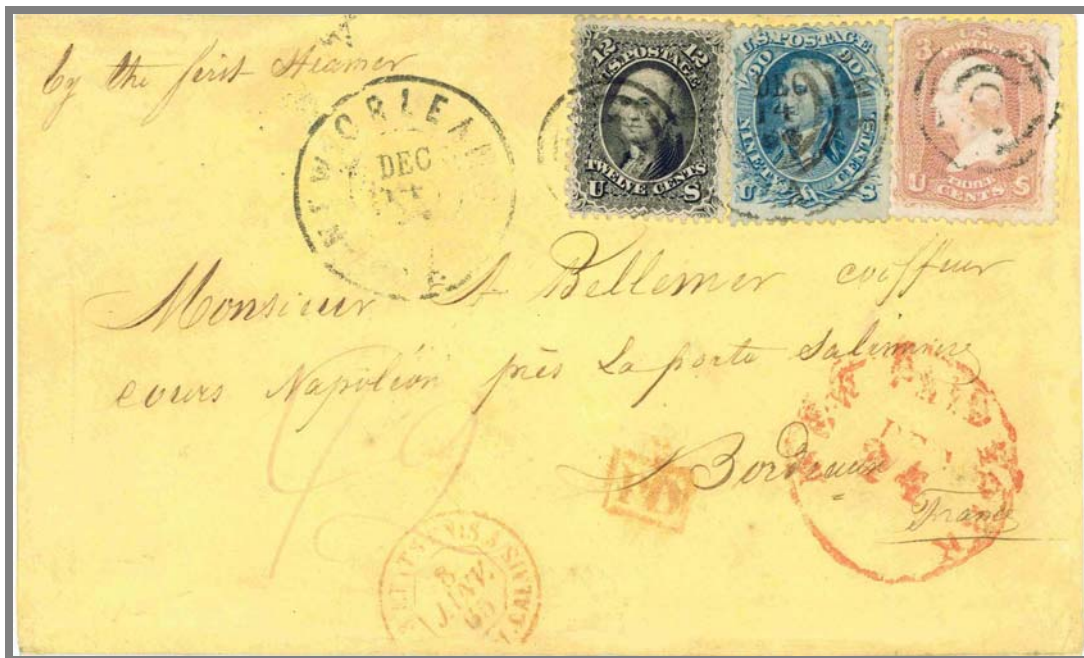 by the first Steamer
NEW ORLEANS
DEC
14
12 12
U.S. POSTAGE
TWELVE CENTS
U S
U.S. POSTAGE
90 90
NINETY CENTS
U S
DEC
14
U.S.
3 3
THREE
CENTS
U S
Monsieur A Bellemer coiffeur
cours Napoléon près La porte Salinière
Bordeaux
France
PAID
24
ETATS-UNIS
8
JANV.
CALAIS